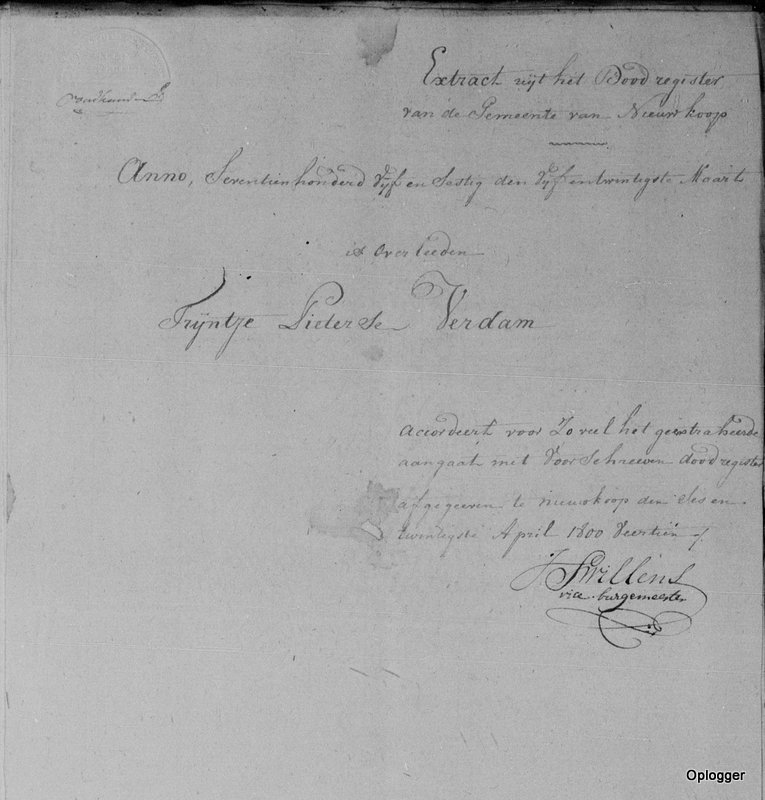 Extract uijt het Doodregister
van de Gemeente van Nieuwkoop
Anno, Seventienhonderd Vyf en Sestig den Vyf entwintigste Maart
is Overleeden
Trijntje Pieterse Verdam
accordeert voor Zo veel het geextraheerde
aangaat met Voorschreeven doodregister
afgegeeven te nieuwkoop den Ses en
twintigste April 1800 Veertien
vice burgemeester
Oplogger